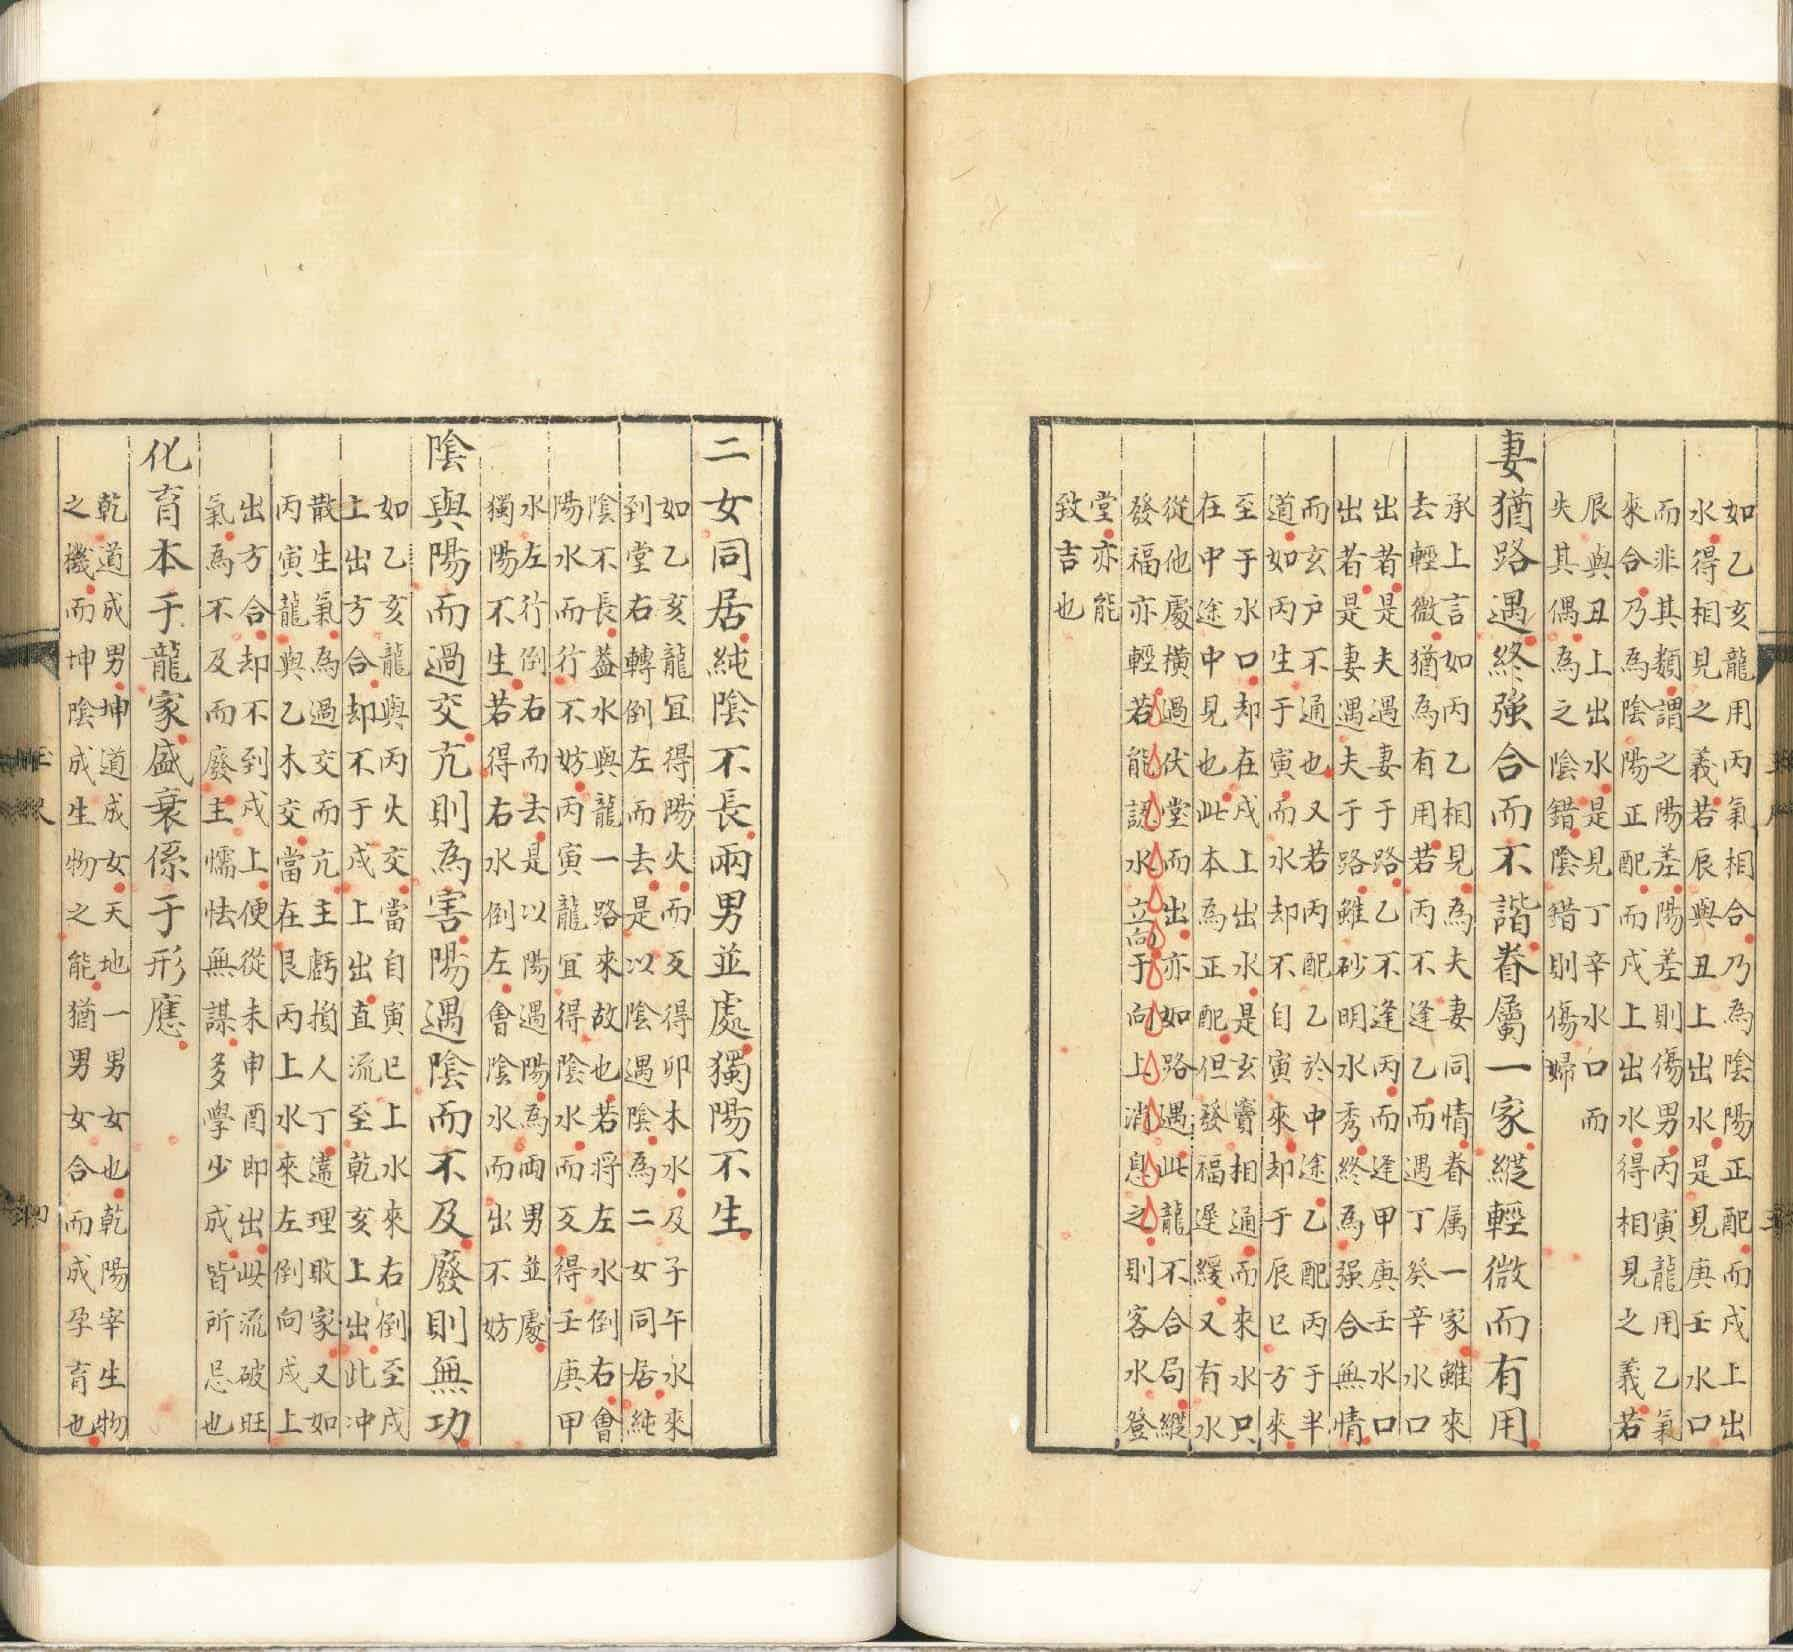 如乙亥龍用丙氣相合乃為陰陽正配而戍上出
水得相見之義若辰與丑上出水是見庚壬水口
而非其類謂之陽差陽差則傷男丙寅龍用乙氣
來合乃為陰陽正配而戍上出水得相見之義若
辰與丑上出水是見丁辛水口而
失其偶為之陰錯陰錯則傷婦
妻猶路遇終強合而不諧眷屬一家縱輕微而有用
承上言如丙乙相見為夫妻同情眷属一家雖來
去輕微猶為有用若丙不逢乙而遇丁癸辛水口
出者是夫遇妻于路乙不逢丙而逢甲庚壬水口
出者是妻遇夫于路雖砂明水秀終為强合無情
而玄户不通也又若丙配乙於中途乙配丙于半
道如丙生于寅而水却不自寅來却于辰巳方來
至于水口却在戍上出水是玄竅相通而來水只
在中途中見也此本為正配但發福遲緩又有水
從他處橫過伏堂而出亦如路遇此龍不合局縱
發福亦輕若能認水立向于向上消息之則客水登
堂亦能
致吉也
二女同居純陰不長兩男並處獨陽不生
如乙亥龍宜得陽火而反得卯木水及子午水來
到堂右轉倒左而去是以陰遇陰為二女同居純
陰不長葢水與龍一路來故也若將左水倒右會
陽水而行不妨丙寅龍宜得陰水而反得壬庚甲
水左行倒右而去是以陽遇陽為両男並處
獨陽不生若得右水倒左會陰水而出不妨
陰與陽而過交亢則為害陽遇陰而不及廢則無功
如乙亥龍與丙火交當自寅巳上水來右倒至戍
上出方合却不于戍上出直流至乾亥上出此冲
散生氣為過交而亢主虧損人丁違理敗家又如
丙寅龍與乙木交當在艮丙上水來左倒向戍上
出方合却不到戍上便從未申酉即出此流破旺
氣為不及而廢主懦怯無謀多學少成皆所忌也
化育本于龍家盛衰係于形應
乾道成男坤道成女天地一男女也乾陽宰生物
之機而坤陰成生物之能猶男女合而成孕育也